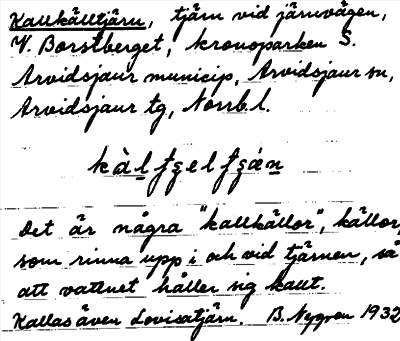 Kallkälltjärn, tjärn vid järnvägen,
V. Borstberget, kronoparken S.
Arvidsjaur municip, Arvidsjaur sn,
Arvidsjaur tg, Norrb.l.
Det är några "kallkällor", källor,
som rinna upp i och vid tjärnen, så
att vattnet håller sig kallt.
Kallas även Lovisatjärn. B. Nygren 1932